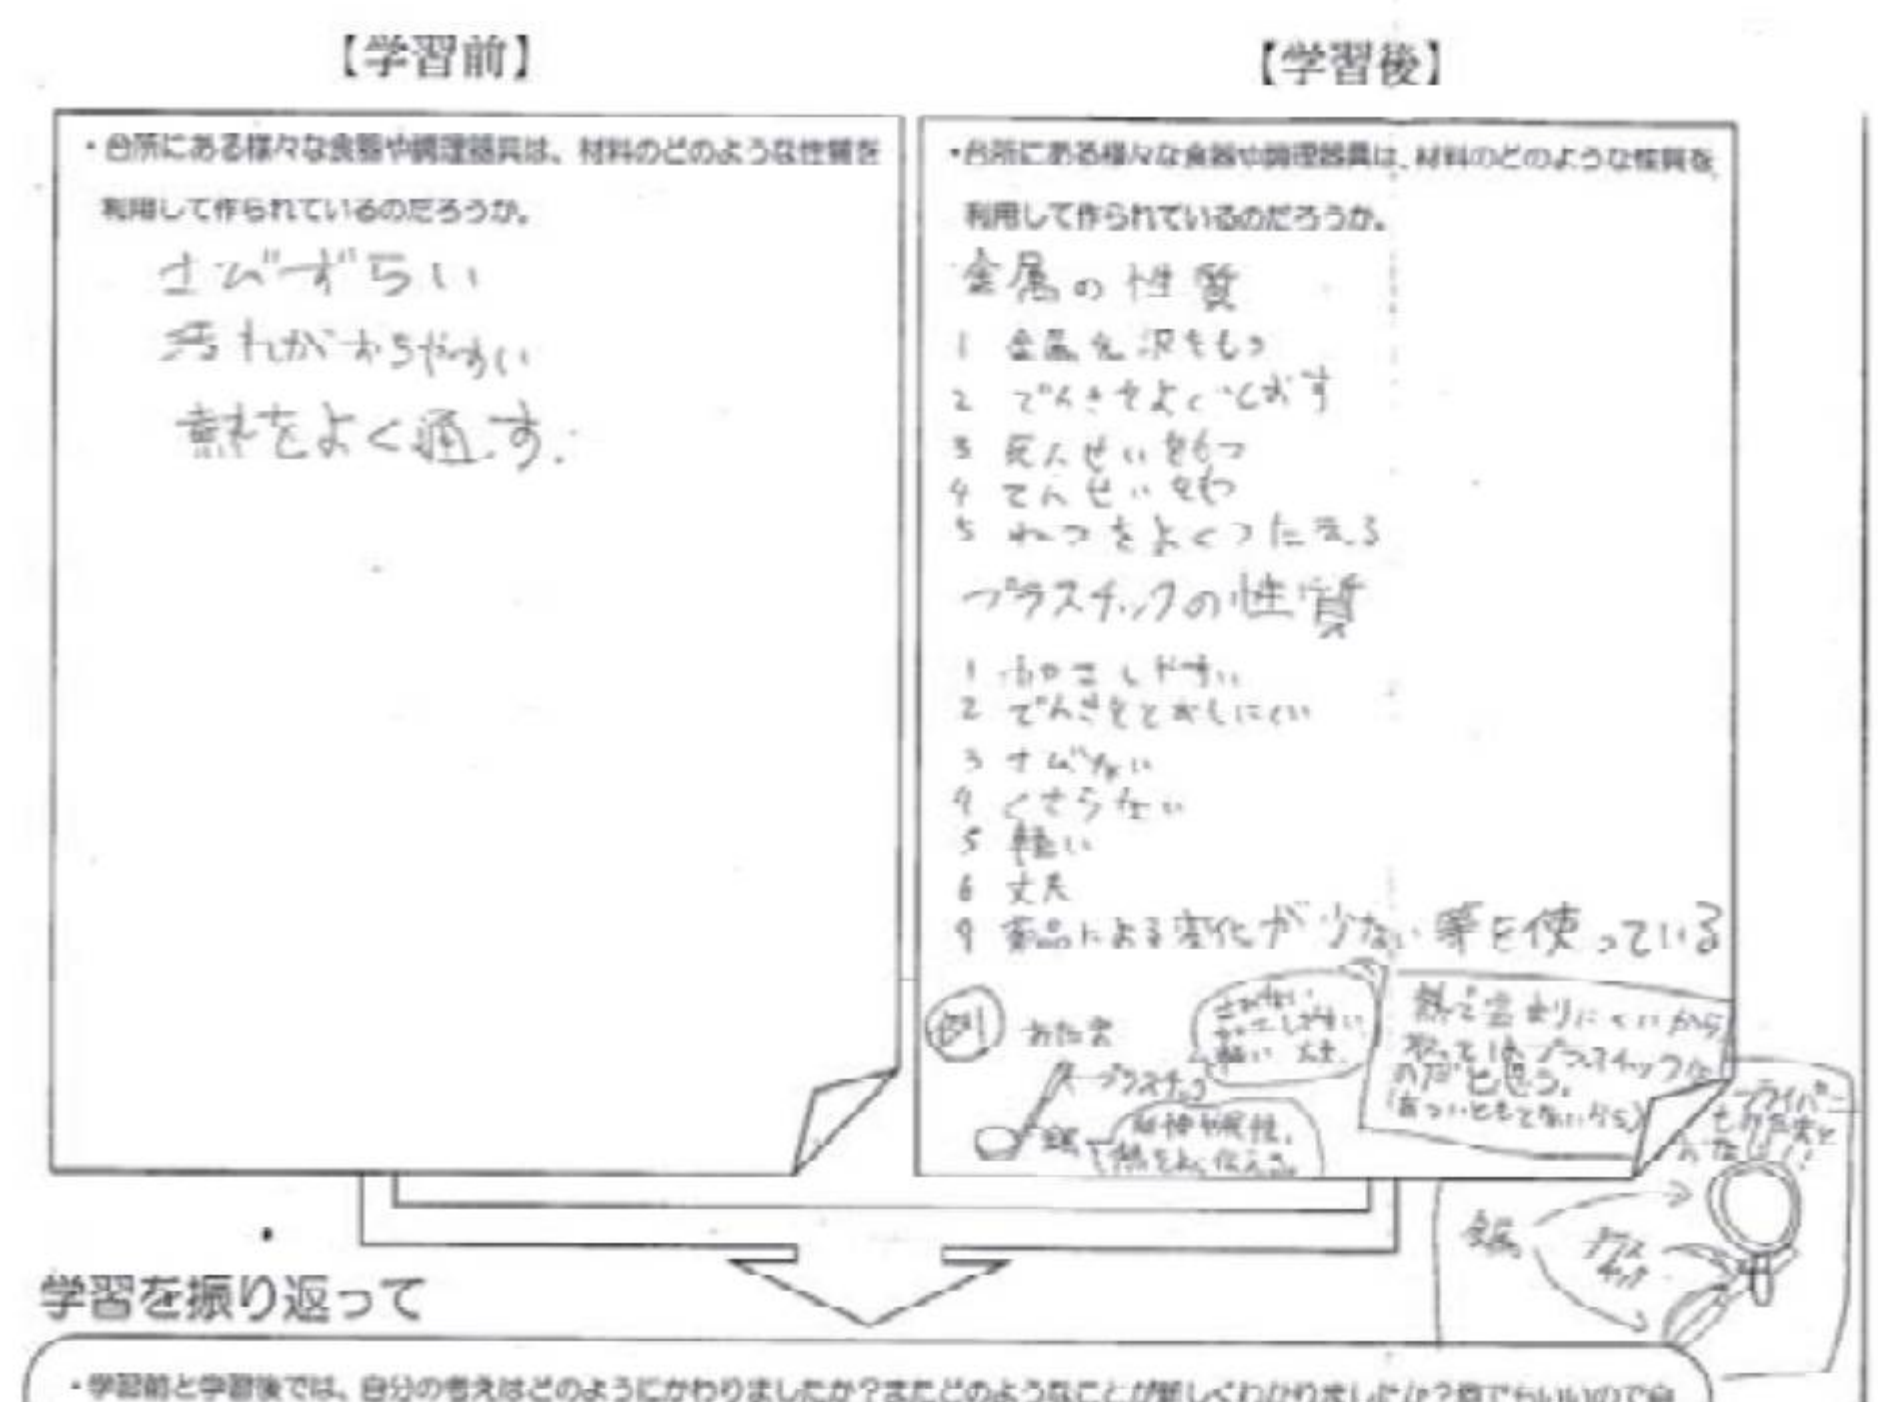 【学習前】
・台所にある様々な食器や調理器具は、材料のどのような性質を
利用して作られているのだろうか。
さびずらい
汚れがおちやすい
熱をよく通す.
【学習後】
・台所にある様々な食器や調理器具は、材料のどのような性質を
利用して作られているのだろうか。
金属の性質
1 金属光沢をもつ
2 でんきをよくとおす
3 せいをもつ
4 てんせいをもつ
5 ねつをよくつたえる
プラスチックの性質
1 かこうしやすい
2 でんきをとおしにくい
3 さびない
4 くさらない
5 軽い
6 丈夫
薬品による変化が少ない等を使っている
例 おたま
さびない
しやすい
軽い 丈夫
プラスチック
金属
延性や展性、
熱をよく伝える。
熱で
取っ手はプラスチックな
のだと思う。
(あついともてないから)
フライパン
金属
プラス
チック
学習を振り返って
・学習前と学習後では、自分の考えはどのようにかわりましたか？またどのようなことが新しくわかりましたか？何でもいいので自